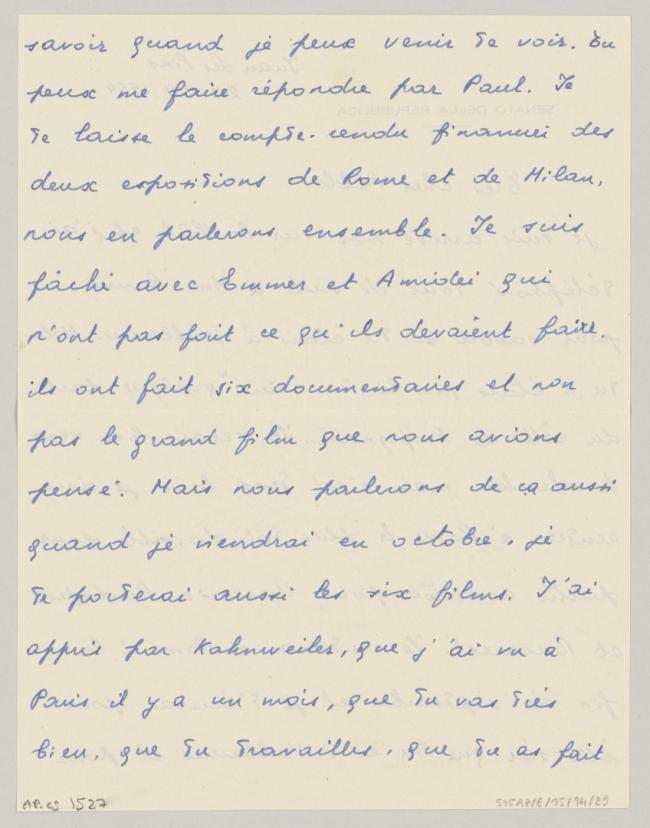 savoir quand je peux venir te voir. Tu
peux me faire répondre par Paul. Je
te laisse le compte-rendu financier des
deux espositions de Rome et de Milan,
nous en parlerons ensemble. Je suis
fâché avec Emmer et Amidei qui
n'ont pas fait ce qu'ils devaient faire.
ils ont fait six documentaires et non
pas le grand film que nous avions
pensé. Mais nous parlerons de ça aussi
quand je viendrai en octobre. je
te porterai aussi les six films. J'ai
appris par Kahnweiler, que j'ai vu à
Paris il y a un mois, que tu vas très
bien, que tu travailles, que tu as fait
AP. cs 1527
515AP/E/15/14/29
SENATO DELLA REPUBBLICA